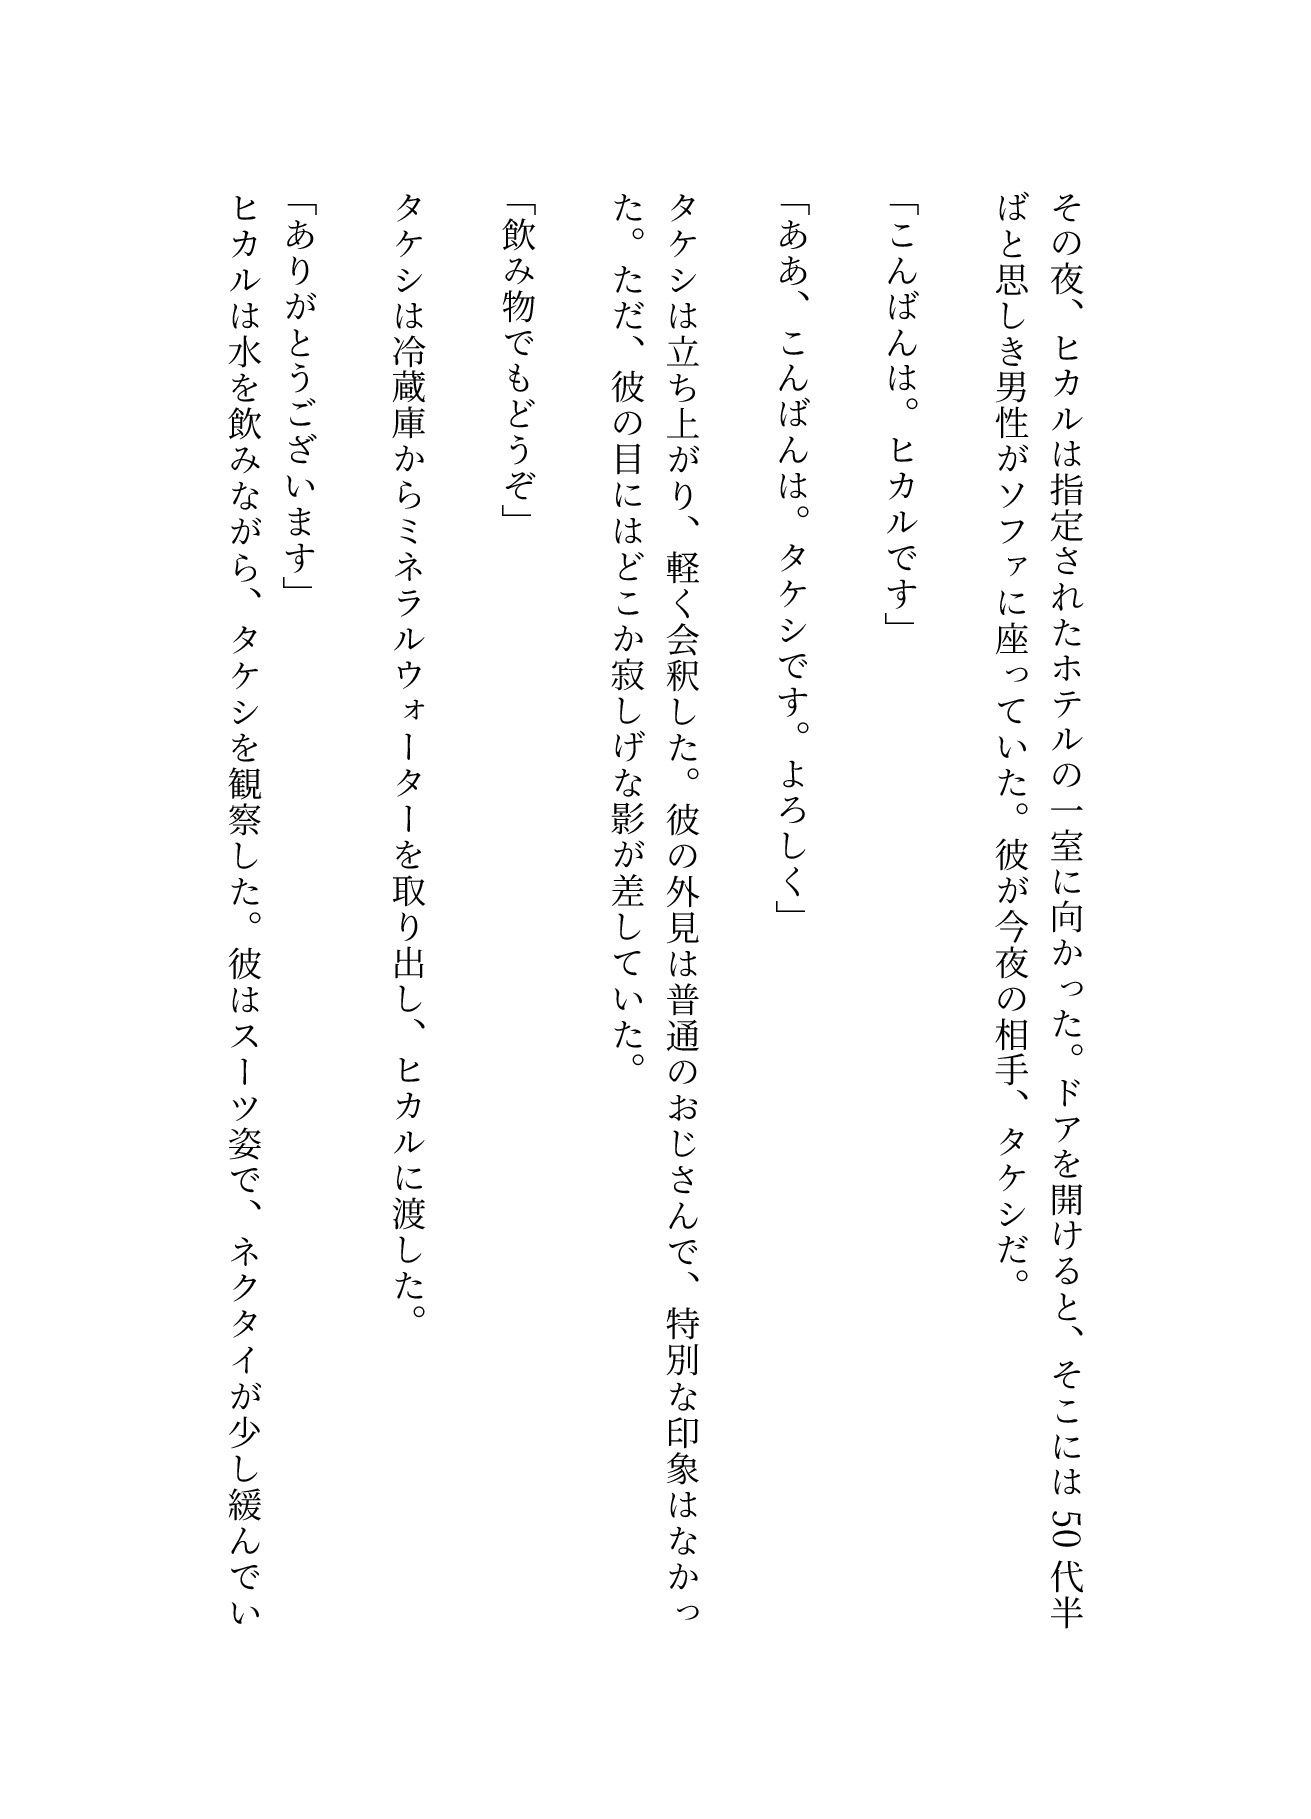 その夜、ヒカルは指定されたホテルの一室に向かった。ドアを開けると、そこには 50 代半
ばと思しき男性がソファに座っていた。彼が今夜の相手、タケシだ。
「こんばんは。ヒカルです」
「ああ、こんばんは。タケシです。よろしく」
タケシは立ち上がり、軽く会釈した。彼の外見は普通のおじさんで、特別な印象はなかっ
た。ただ、彼の目にはどこか寂しげな影が差していた。
「飲み物でもどうぞ」
タケシは冷蔵庫からミネラルウォーターを取り出し、ヒカルに渡した。
「ありがとうございます」
ヒカルは水を飲みながら、タケシを観察した。彼はスーツ姿で、ネクタイが少し緩んでい